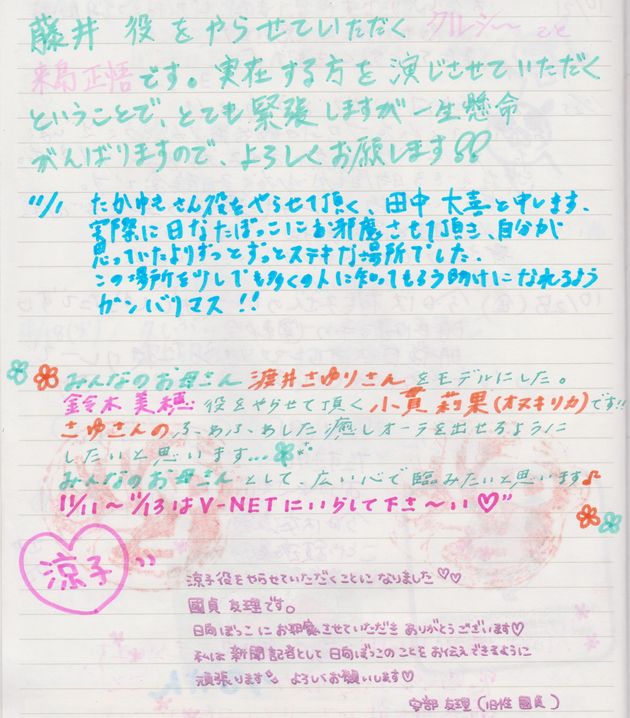 藤井 役をやらせていただく クルシ〜こと
来島正悟です。実在する方を演じさせていただく
ということで、とても緊張しますが一生懸命
がんばりますので、よろしくお願します!!
11/1 たかゆきさん役をやらせて頂く、田中 大喜と申します、
実際に日なたぼっこにお邪魔させて頂き、自分が
思っていたよりずっとずっとステキな場所でした.
この場所を少しでも多くの人に知ってもらう助けになれるよう
ガンバリマス!!
みんなのお母さん 渡井さゆりさん をモデルにした。
鈴木 美穂 役をやらせて頂く 小貫 莉果(オヌキリカ)です!!
さゆさんのふわふわした癒しオーラを出せるように
したいと思います…
みんなのお母さんとして、広い心で臨みたいと思います♪
11/11〜11/13はV-NETにいらして下さ〜い♡"
涼子
涼子役をやらせていただくことになりました♡♡
國貞 友理です。
日向ぼっこにお邪魔させていただき ありがとうございます♡
私は新聞記者として日向ぼっこのことをお伝えできるように
頑張ります。よろしくお願いします♡
安部 友理(旧姓 國貞)